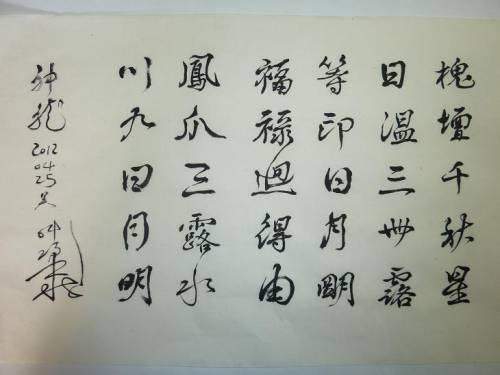 槐壇千秋星
日温三世露
等印日月剛
福祿過得由
鳳爪三露水
川九日月明
神龍 2012 04.25